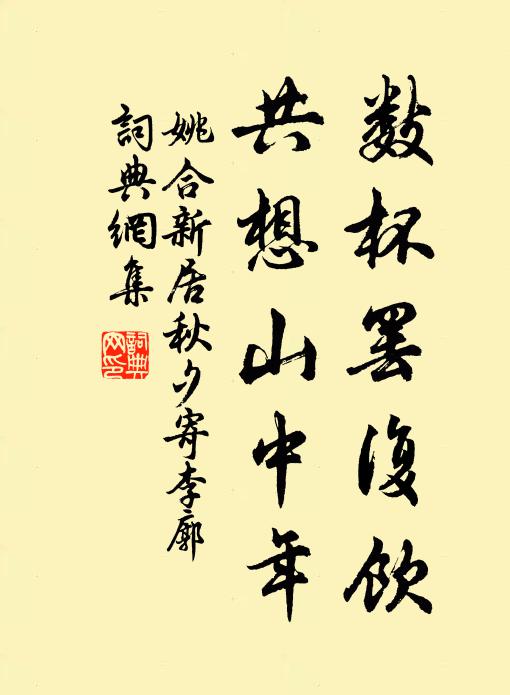 數杯罷復飲
共想山中年
姚合新居秋夕寄李廓
詞典網集
詞典
网印